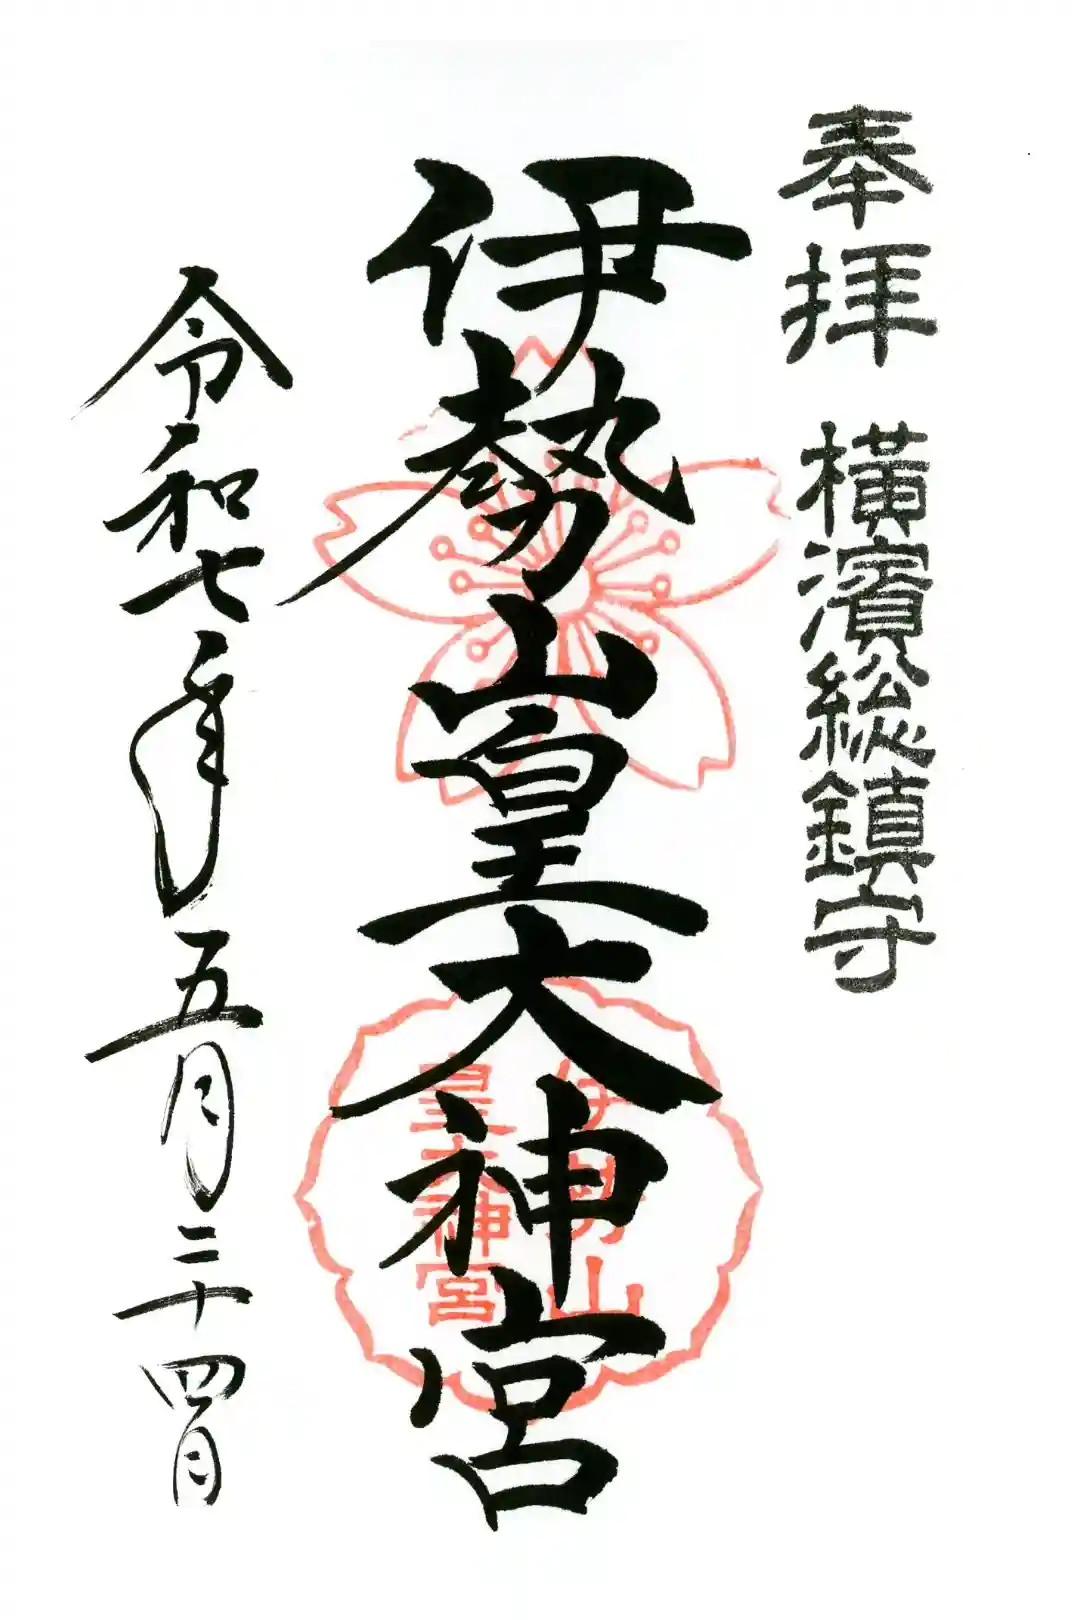 奉拝 横濱総鎮守
伊勢山皇大神宮
伊勢山
皇大神宮
令和七年五月二十四日